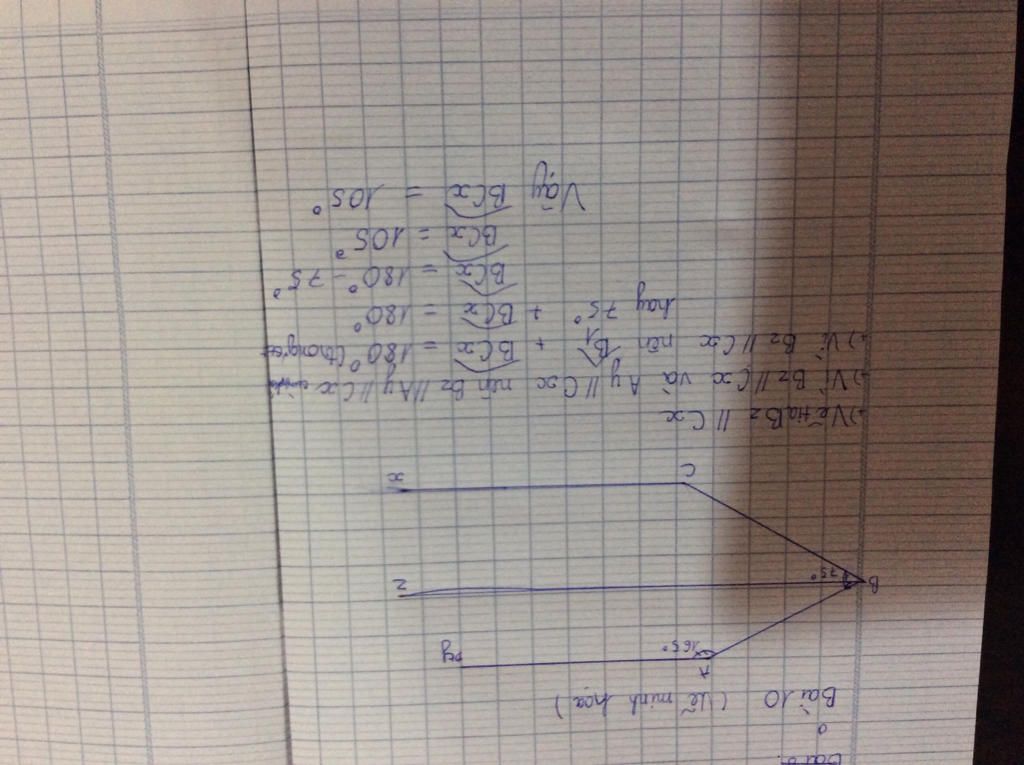 Bài 10 (Vẽ minh họa)
A
165°
y
B
75°
z
C
x
→) Vẽ tia Bz // Cx
→) Vì Bz // Cx và Ay // Cx nên Bz // Ay // Cx
→) Vì Bz // Cx nên B1 + BCx = 180° (trong
hay 75° + BCx = 180°
BCx = 180° - 75°
BCx = 105°
Vậy BCx = 105°